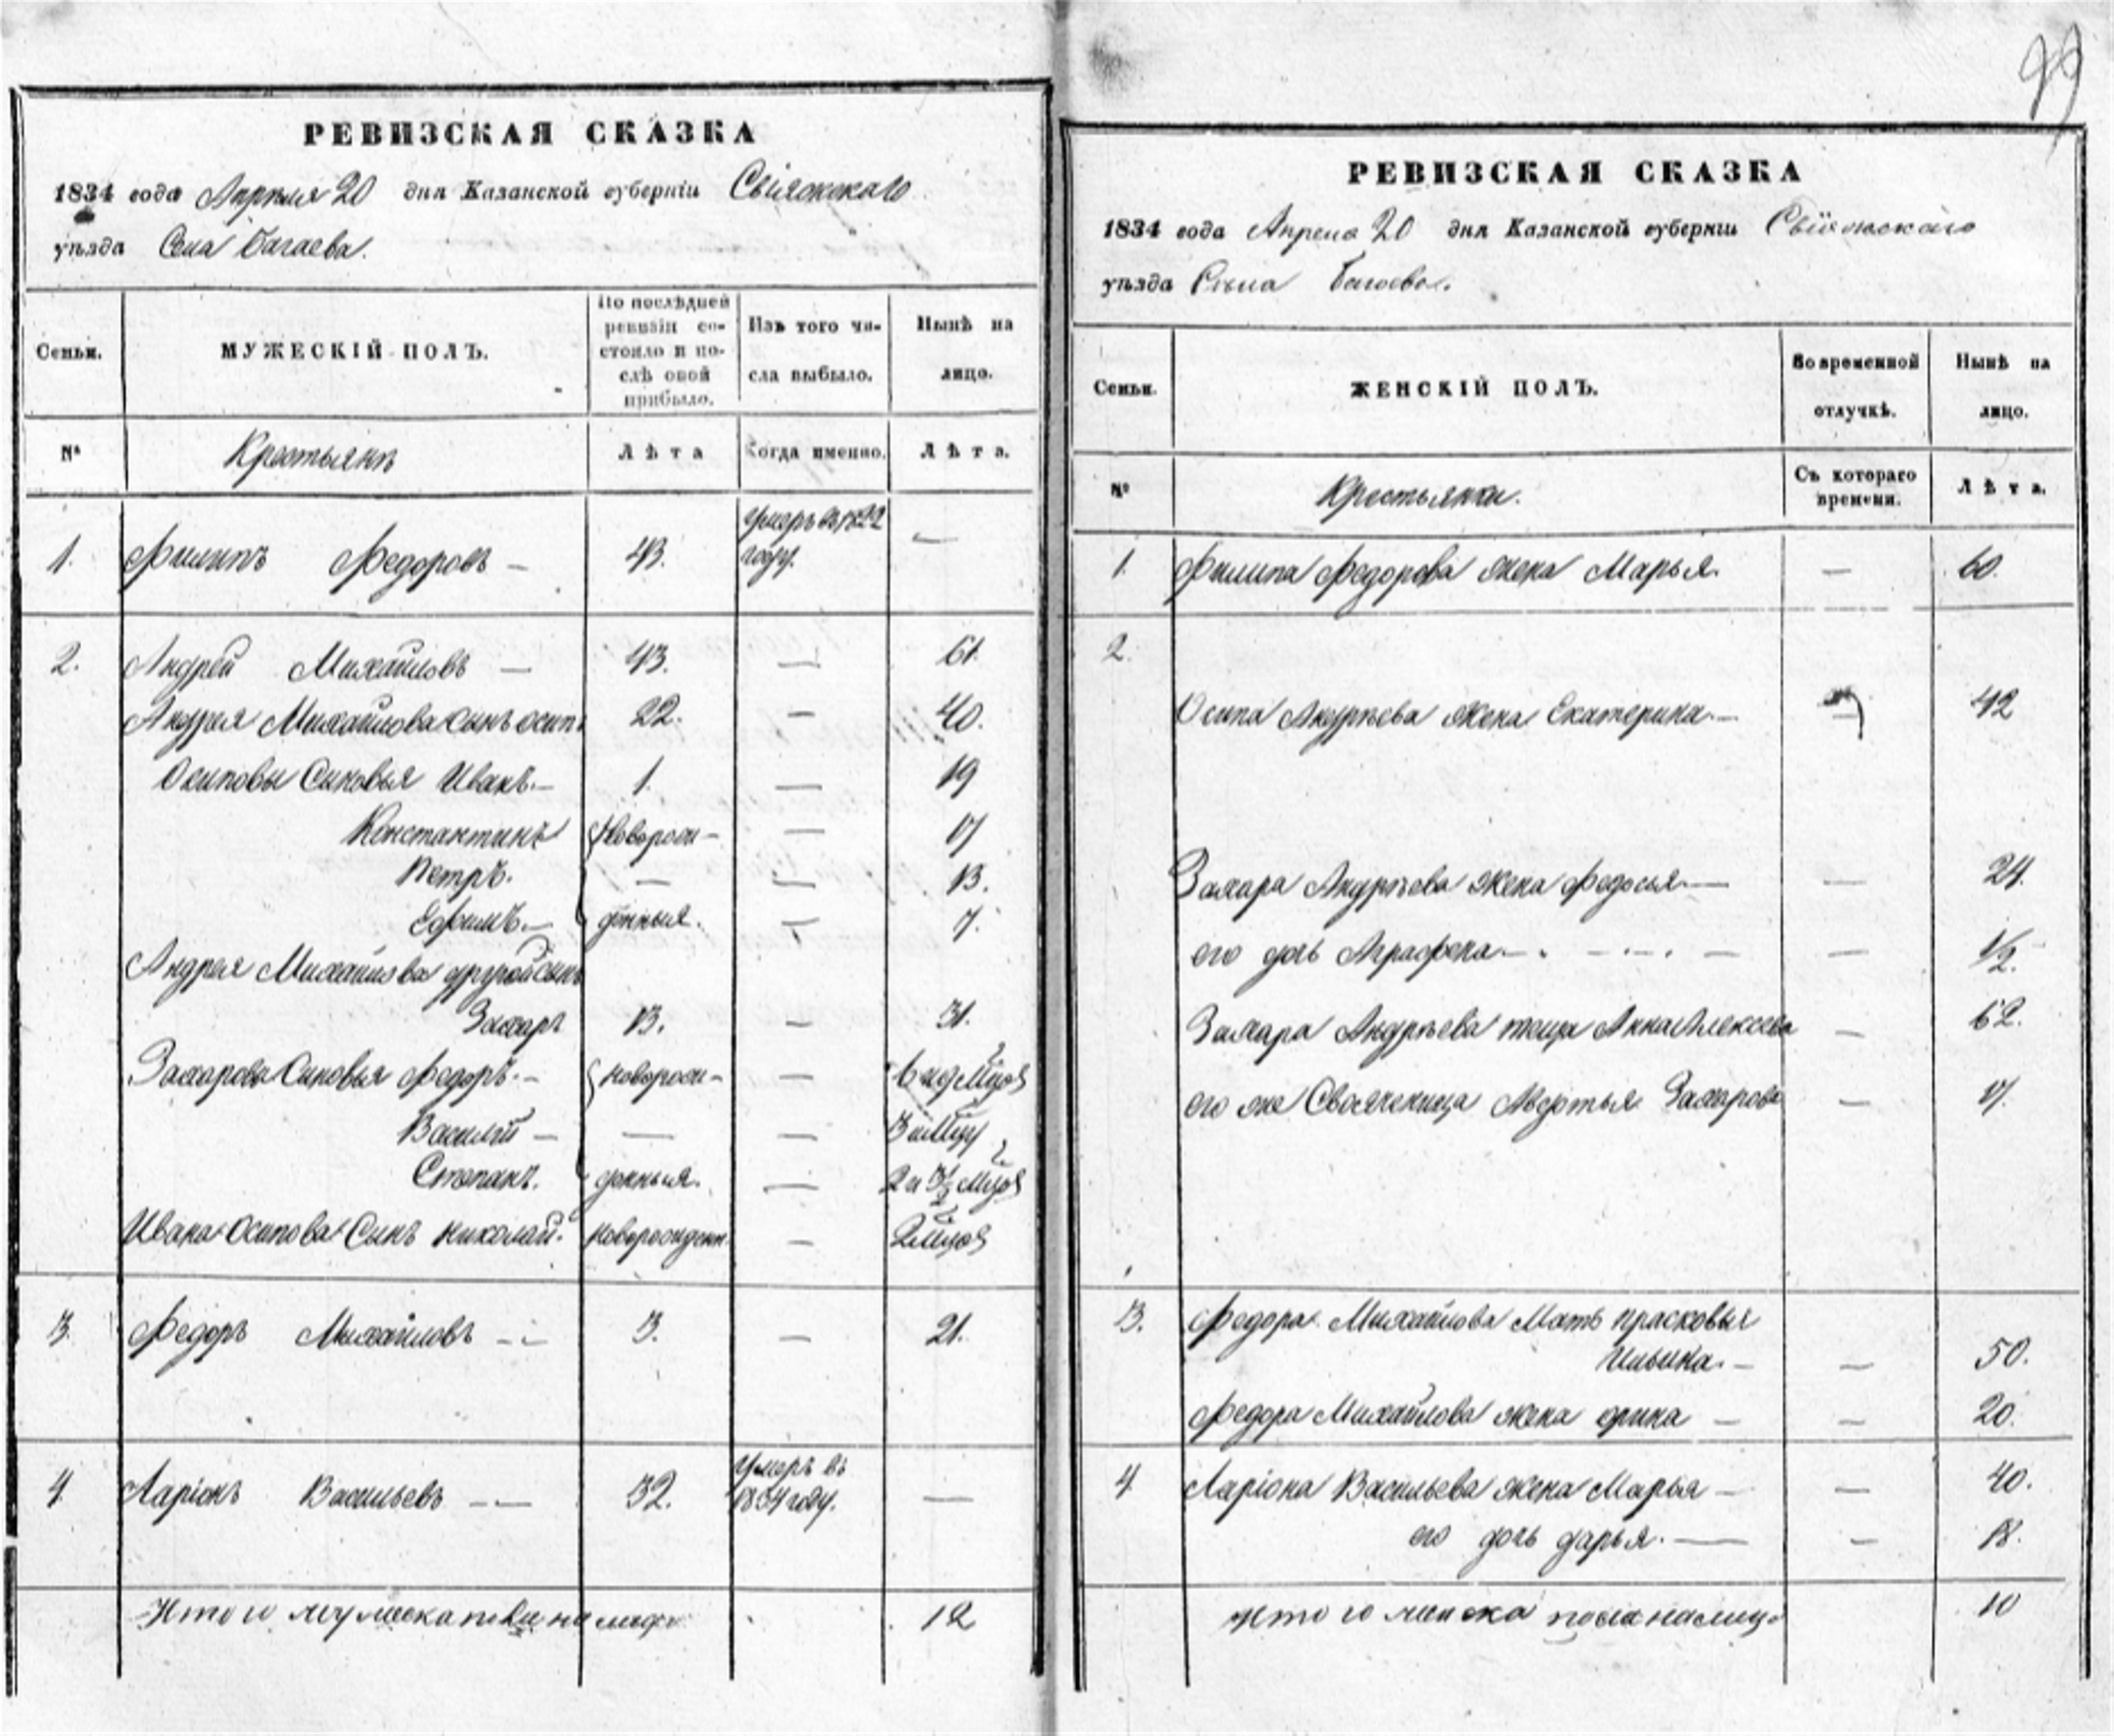 99
РЕВИЗСКАЯ СКАЗКА
1834 года Апреля 20 дня Казанской губерніи Свіяжскаго
уѣзда Села Багаева.
Сеньи. МУЖЕСКІЙ ПОЛЪ. По послѣдней ревизіи состояло и послѣ оной прибыло. Изъ того числа выбыло. Нынѣ на лицо.
№ Крестьянъ Лѣта Когда именно. Лѣта.
1. Филипъ Федоровъ — 43. Умеръ въ 1822 году. —
2. Андрей Михайловъ — 43. — 61.
Андрея Михайлова сынъ осипъ 22. — 40.
Осиповы Сыновья Иванъ. — 1. — 19
Константинъ Новорож- — 17
Петръ. — — 13.
Ефимъ. — денныя. — 7.
Андрея Михайлова другой сынъ
Захаръ 13. — 31.
Захаровы Сыновья Федоръ. — новорож- —
Василій — — —
Степанъ. денныя. —
Ивана Осипова Сынъ Николай. новорожден. —
3. Федоръ Михайловъ — 3. — 21.
4. Ларіонъ Васильевъ — 32. Умеръ въ 1834 году. —
Итого мужеска пола на лицо 12
РЕВИЗСКАЯ СКАЗКА
1834 года Апреля 20 дня Казанской губерніи Свіяжскаго
уѣзда Села Багаева.
Сеньи. ЖЕНСКІЙ ПОЛЪ. Во временной отлучкѣ. Нынѣ на лицо.
№ Крестьянки. Съ котораго времени. Лѣта.
1. Филипа Федорова жена Марья. — 60.
2.
Осипа Андрѣева жена Екатерина. — — 42
Захара Андрѣева жена Федосья. — — 24.
его дочь Аграфена. — — 1/2.
Захара Андрѣева теща Анна Алексева — 62.
его же Свояченица Авдотья Захарова — 17.
3. Федора Михайлова Мать прасковья
Ильина. — — 50.
Федора Михайлова жена орина — — 20.
4. Ларіона Васильева жена Марья — — 40.
его дочь дарья. — — 18.
Итого женска пола на лицо 10